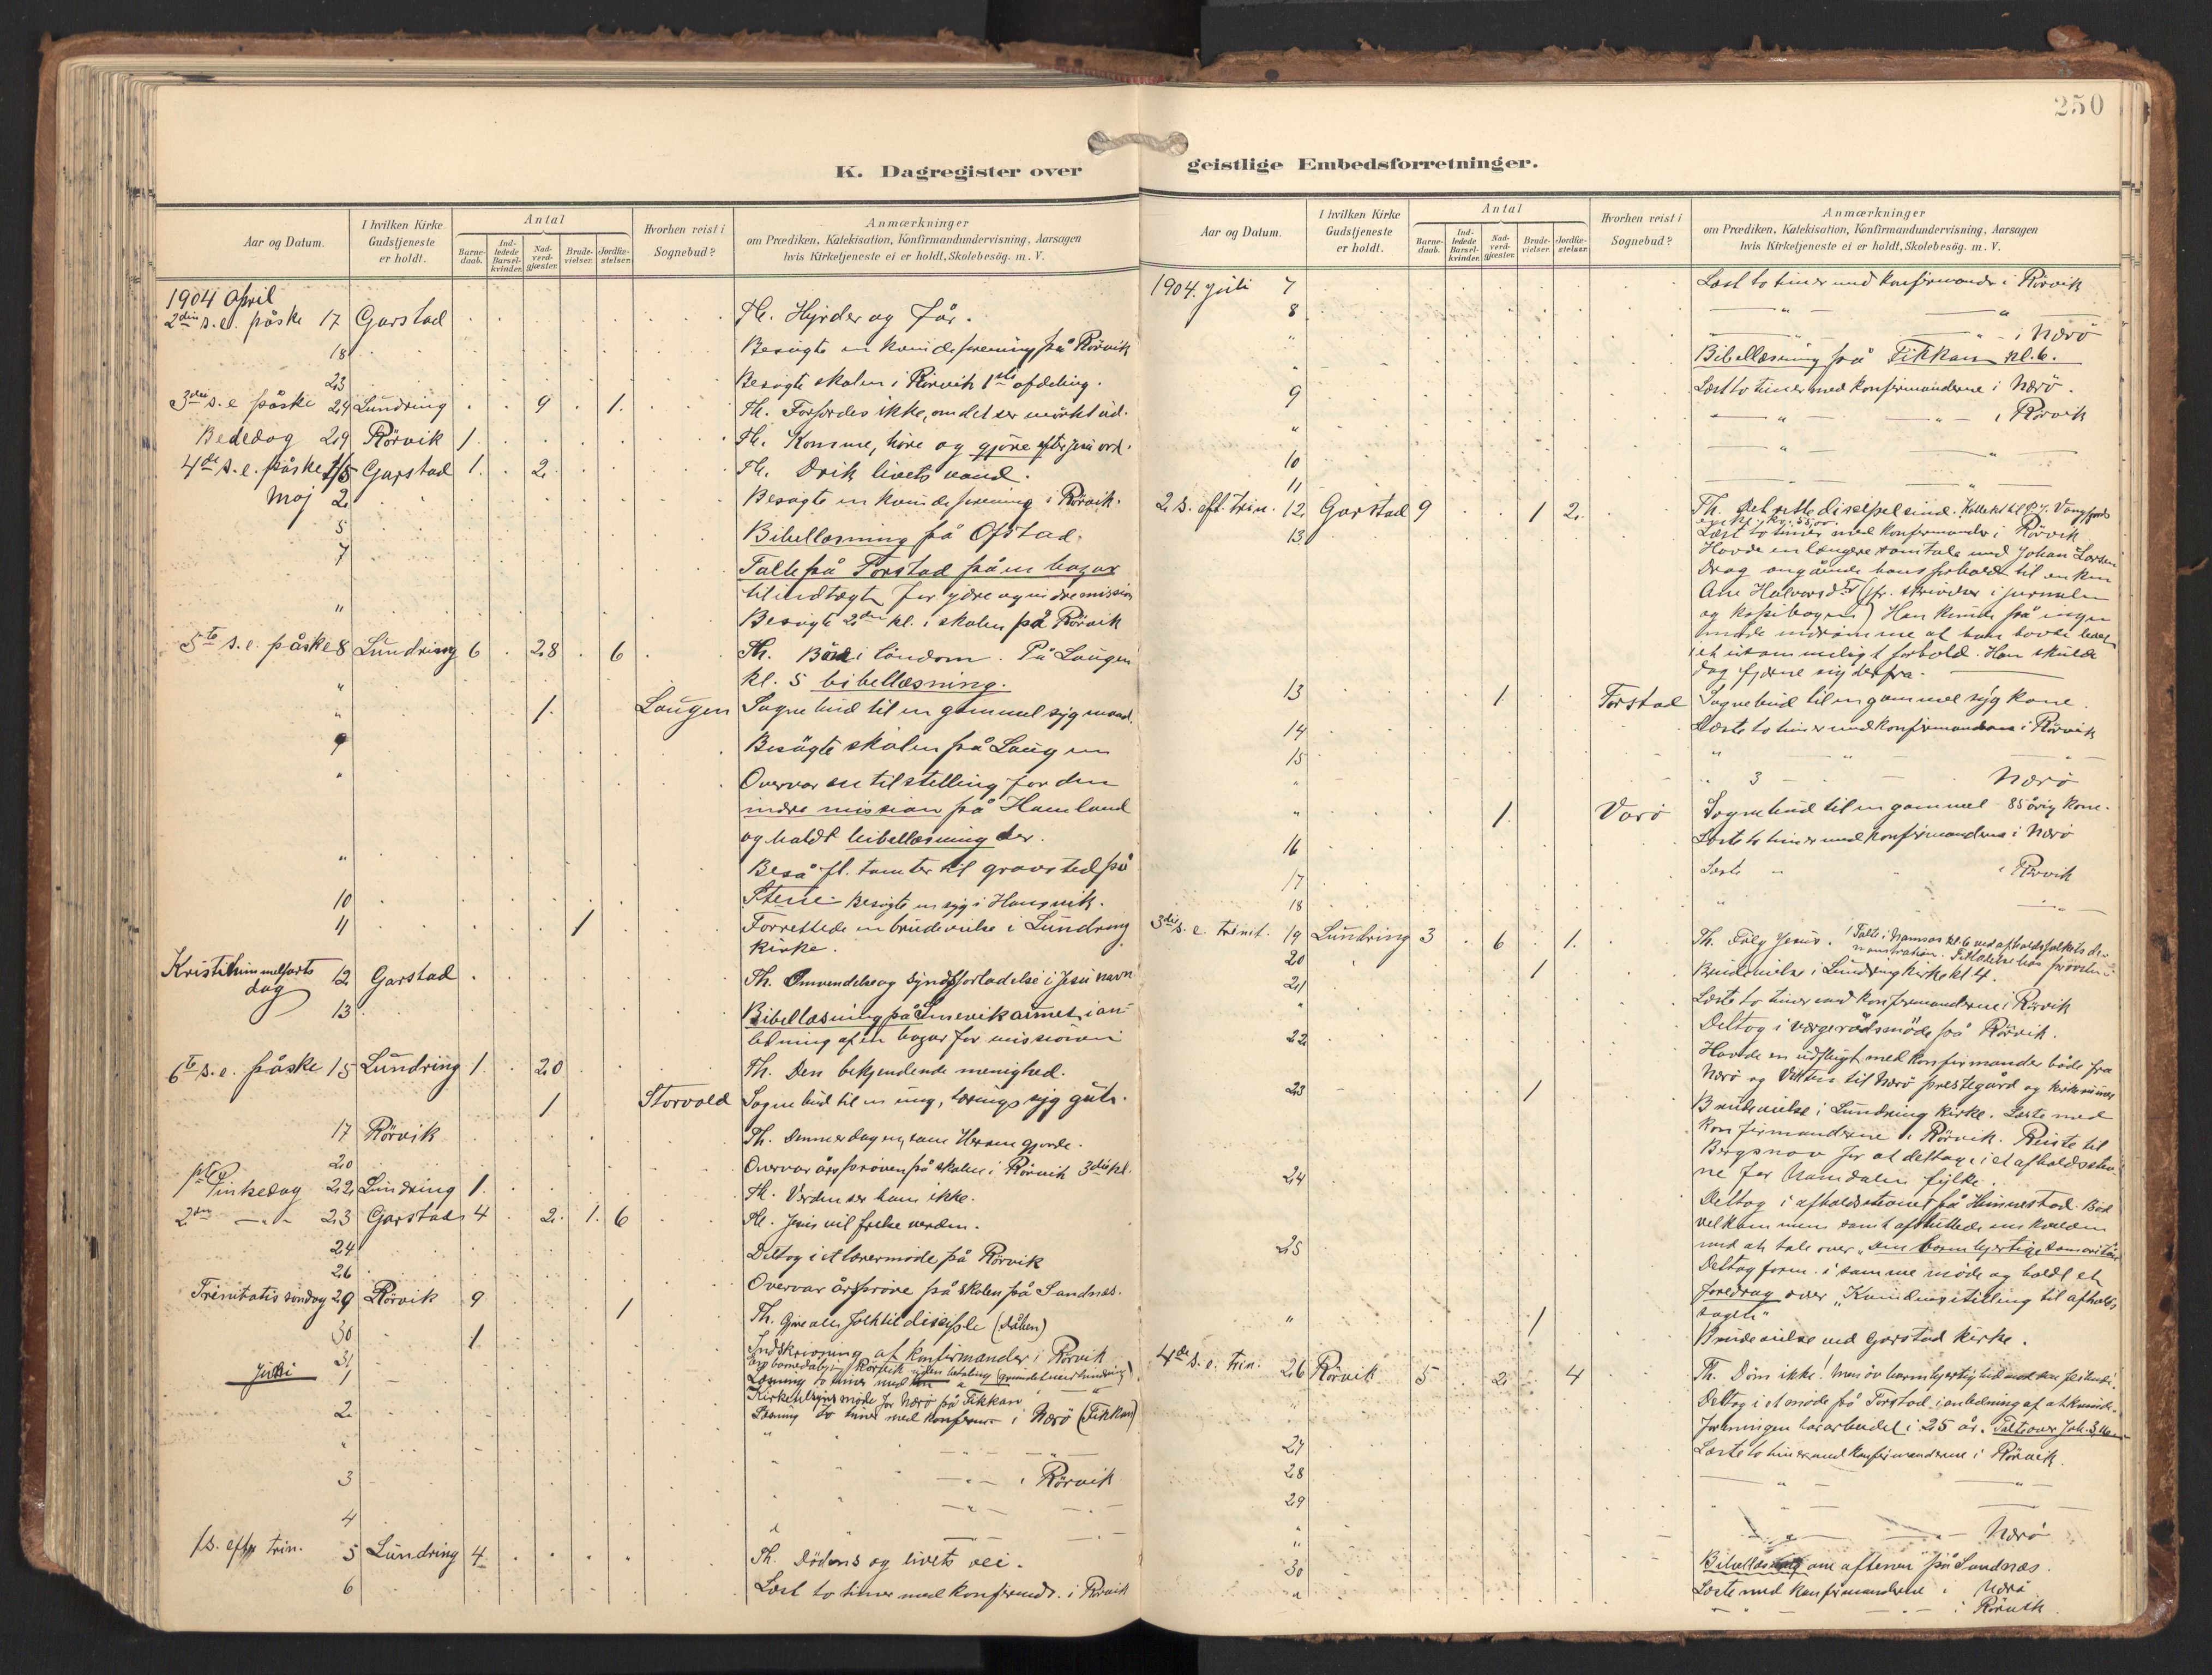 250
K. Dagregister over geistlige Embedsforretninger.
Aar og Datum.
I hvilken Kirke Gudstjeneste er holdt.
Antal
Barne-daab.
Ind-ledede Barsel-kvinder.
Nad-verd-gjæster.
Brude-vielser.
Jordfæ-stelser.
Hvorhen reist i Sognebud?
Anmærkninger
om Prædiken, Katekisation, Konfirmandundervisning, Aarsagen
hvis Kirketjeneste ei er holdt, Skolebesög. m. V.
1904 April
2den s. e. påske 17 Garstad Th. Hyrder og Får.
18 Besøgte en kvindeforening på Rörvik
23 Besøgte skolen i Rörvik 1ste afdeling.
3die s. e påske 24 Lundring 9 1. Th. Forfærdes ikke, om det ser mørkt ud.
Bededag 29 Rörvik 1. Th. Komme, høre og gjøre efter Jesu ord.
4de s. e. påske 1/5 Garstad 1. 2. Th. Drik livets vand.
Maj 2 Besøgte en kvindeforening i Rörvik.
5 Bibellæsning på Ofstad.
7 Talte på Torstad på en bazar
til indtægt for ydre og indre mission
" Besøgte 2den kl. i skolen på Rörvik
5te s. e. påske 8 Lundring 6 28 6 Th. Bön i löndom. På Laugen
kl. 5 bibellæsning.
" 1. Laugen Sognebud til en gammel syg mand.
9 Besøgte skolen på Laugen
" Overvar en tilstelling for den
indre mission på Hamland
og holdt bibellæsning der.
" Beså fl. tomter til gravsted på
10 Stene. Besøgte en syg i Hansvik.
11 1 Forrettede en brudevielse i Lundring
kirke.
Kristi himmelfarts
dag 12 Garstad Th. Omvendelse og syndsforladelse i Jesu navn.
13 Bibellæsning på i an-
ledning af en bazar for missionen
6te s. e. påske 15 Lundring 1. 20 Th. Den bekjendende menighed.
1 Storvold Sognebud til en ung, tæringssyg gut.
17 Rörvik Th. Denne er dagen, som Herren gjorde.
20 Overvar årsprøven på skolen i Rörvik 3die kl.
1ste Pinsedag 22 Lundring 1. Th. Verden ser ham ikke.
2den — " - 23 Garstad 4 2. 1. 6 Th. Jesus vil frelse verden.
24 Deltog i et lærermøde på Rörvik
26 Overvar årsprøve på skolen på Sandnes.
Trinitatis søndag 29 Rörvik 9 1 Th. Gjøre alle folk til disciple (dåben)
30 1 Indskrivning af konfirmander i Rörvik
31
Juni 1 Læsning to timer med
Kirketilsynsmøde for Nærø på Fikkan
2 Læsning to timer med konfirm. i Nærø (Fikkan)
" " — " —
3 — " — i Rörvik
4 " — " —
1 s. efter trin. 5 Lundring 4 Th. Dødens og livets vei.
6 Læst to timer med konfirmd. i Rörvik
Aar og Datum.
I hvilken Kirke Gudstjeneste er holdt.
Antal
Barne-daab.
Ind-ledede Barsel-kvinder.
Nad-verd-gjæster.
Brude-vielser.
Jordfæ-stelser.
Hvorhen reist i Sognebud?
Anmærkninger
om Prædiken, Katekisation, Konfirmandundervisning, Aarsagen
hvis Kirketjeneste ei er holdt, Skolebesög. m. V.
1904. juli 7 Læst to timer med konfirmander i Rörvik
8 — " — " —
" — " — " - i Nærö
" Bibellæsning på Fikkan kl. 6.
9 Læst to timer med konfirmanderne i Nærö.
" — " — " — i Rörvik
10 — " — " —
11 — " —
2 s. eft. trin. 12 Garstad 9 1 2. Th. Det rette discipelsind.
kr. 55,00.
13. Læst to timer med konfirmander i Rörvik
Havde en længere samtale med Johan Larsen
Drag angående hans forhold til enken
Ane Halvorsd. (jfr. skrivelse i jurnalen
og kopibogen) Han kunde på ingen
måde indrømme at have levet
i et usømmeligt forhold. Han skulde
dog fjerne sig derfra.
13 1 Torstad Sognebud til en gammel syg kone.
14 Læste to timer med konfirmanderne i Rörvik
15 " — " — "
" " 3 — Nærö
" 1. Varö Sognebud til en gammel 85 årig kone.
16 Læste to timer med konfirmanderne i Nærö
17 Læste " " i Rörvik
18 " — " —
3die s. e. trinit. 19 Lundring 3 6 1. Th. Følg Jesus. Talte i Namsos kl. 6 ved afholdsfolkets de-
monstration. Tilladelse hos provsten
20 1 Brudevielse i Lundring kirke kl. 4.
21 Læste to timer med konfirmanderne i Rörvik
" Deltog i værgerådsmöde på Rörvik.
22 Havde en udflugt med konfirmander både fra
Nærö og Vikten til Nærö prestegård og kirkeruiner
23 1 Brudevielse i Lundring kirke. Læste med
konfirmanderne i Rörvik. Reiste til
Bergsnov for at deltage i et afholdsstev-
ne for Namdalen fylke.
24 Deltog i afholdsstevnet på Himmestad. Bød
velkommen samt afsluttede om kvelden
med at tale over "den barmhjertige samaritan"
25 Deltog form. i samme møde og holdt et
foredrag over "Kvindens stilling til afholds-
sagen"
" 1 Brudevielse ved Garstad kirke.
4de s. e. trin. 26 Rörvik 5 2 4 Th. Döm ikke! Men öv barmhjertighed
" Deltog i et møde på Torstad i anledning af at kvinde-
foreningen har arbeidet i 25 år. Talte over Joh. 3,16
27 Læste to timer med konfirmanderne i Rörvik.
28 — " — " —
29 " " — " —
" — " — " — Nærö
30 Bibellæsning om aftenen på Sandnæs.
" Læste med konfirmanderne i Nærö
— " — — " - i Rörvik